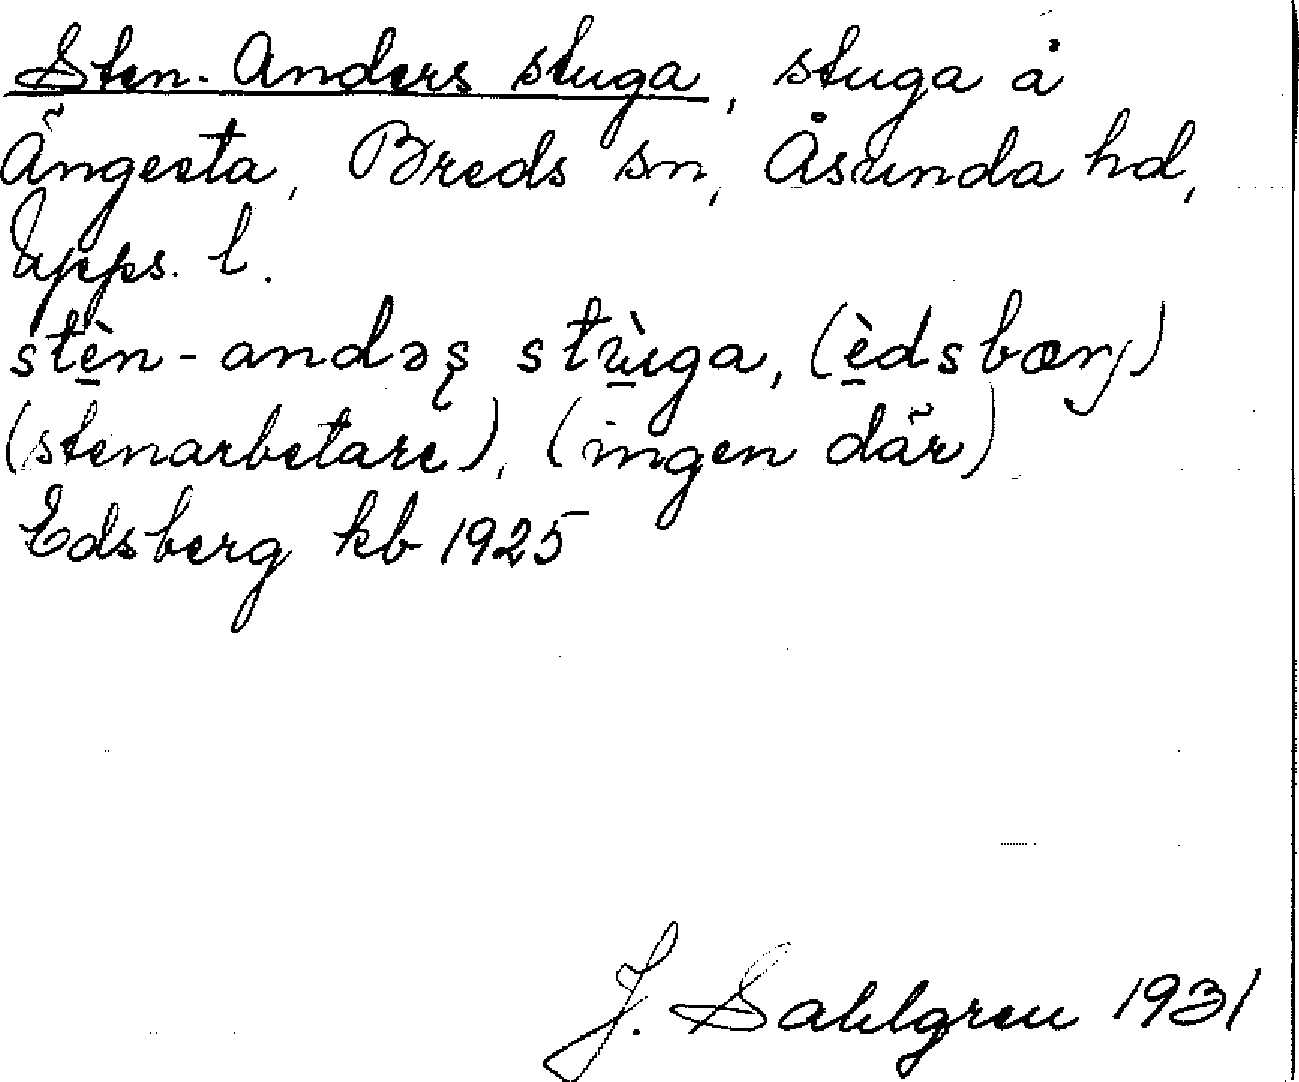 Sten-Anders stuga, stuga å
Ängesta, Breds sn, Åsunda hd,
Upps. l.
stè̲n-andəʂ strù̲ga, (è̲dsbærj)
(stenarbetare), (ingen där)
Edsberg kb 1925
J. Sahlgren 1931